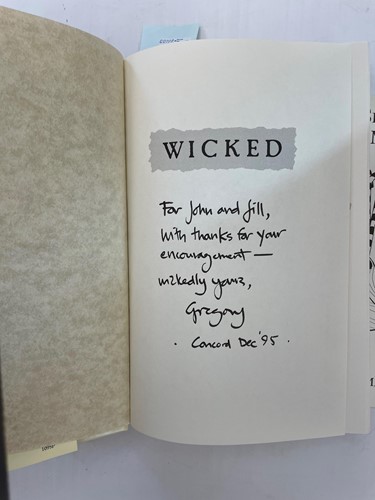 WICKED
For John and Jill,
with thanks for your
encouragement —
wickedly yours,
Gregory
· Concord Dec '95 ·